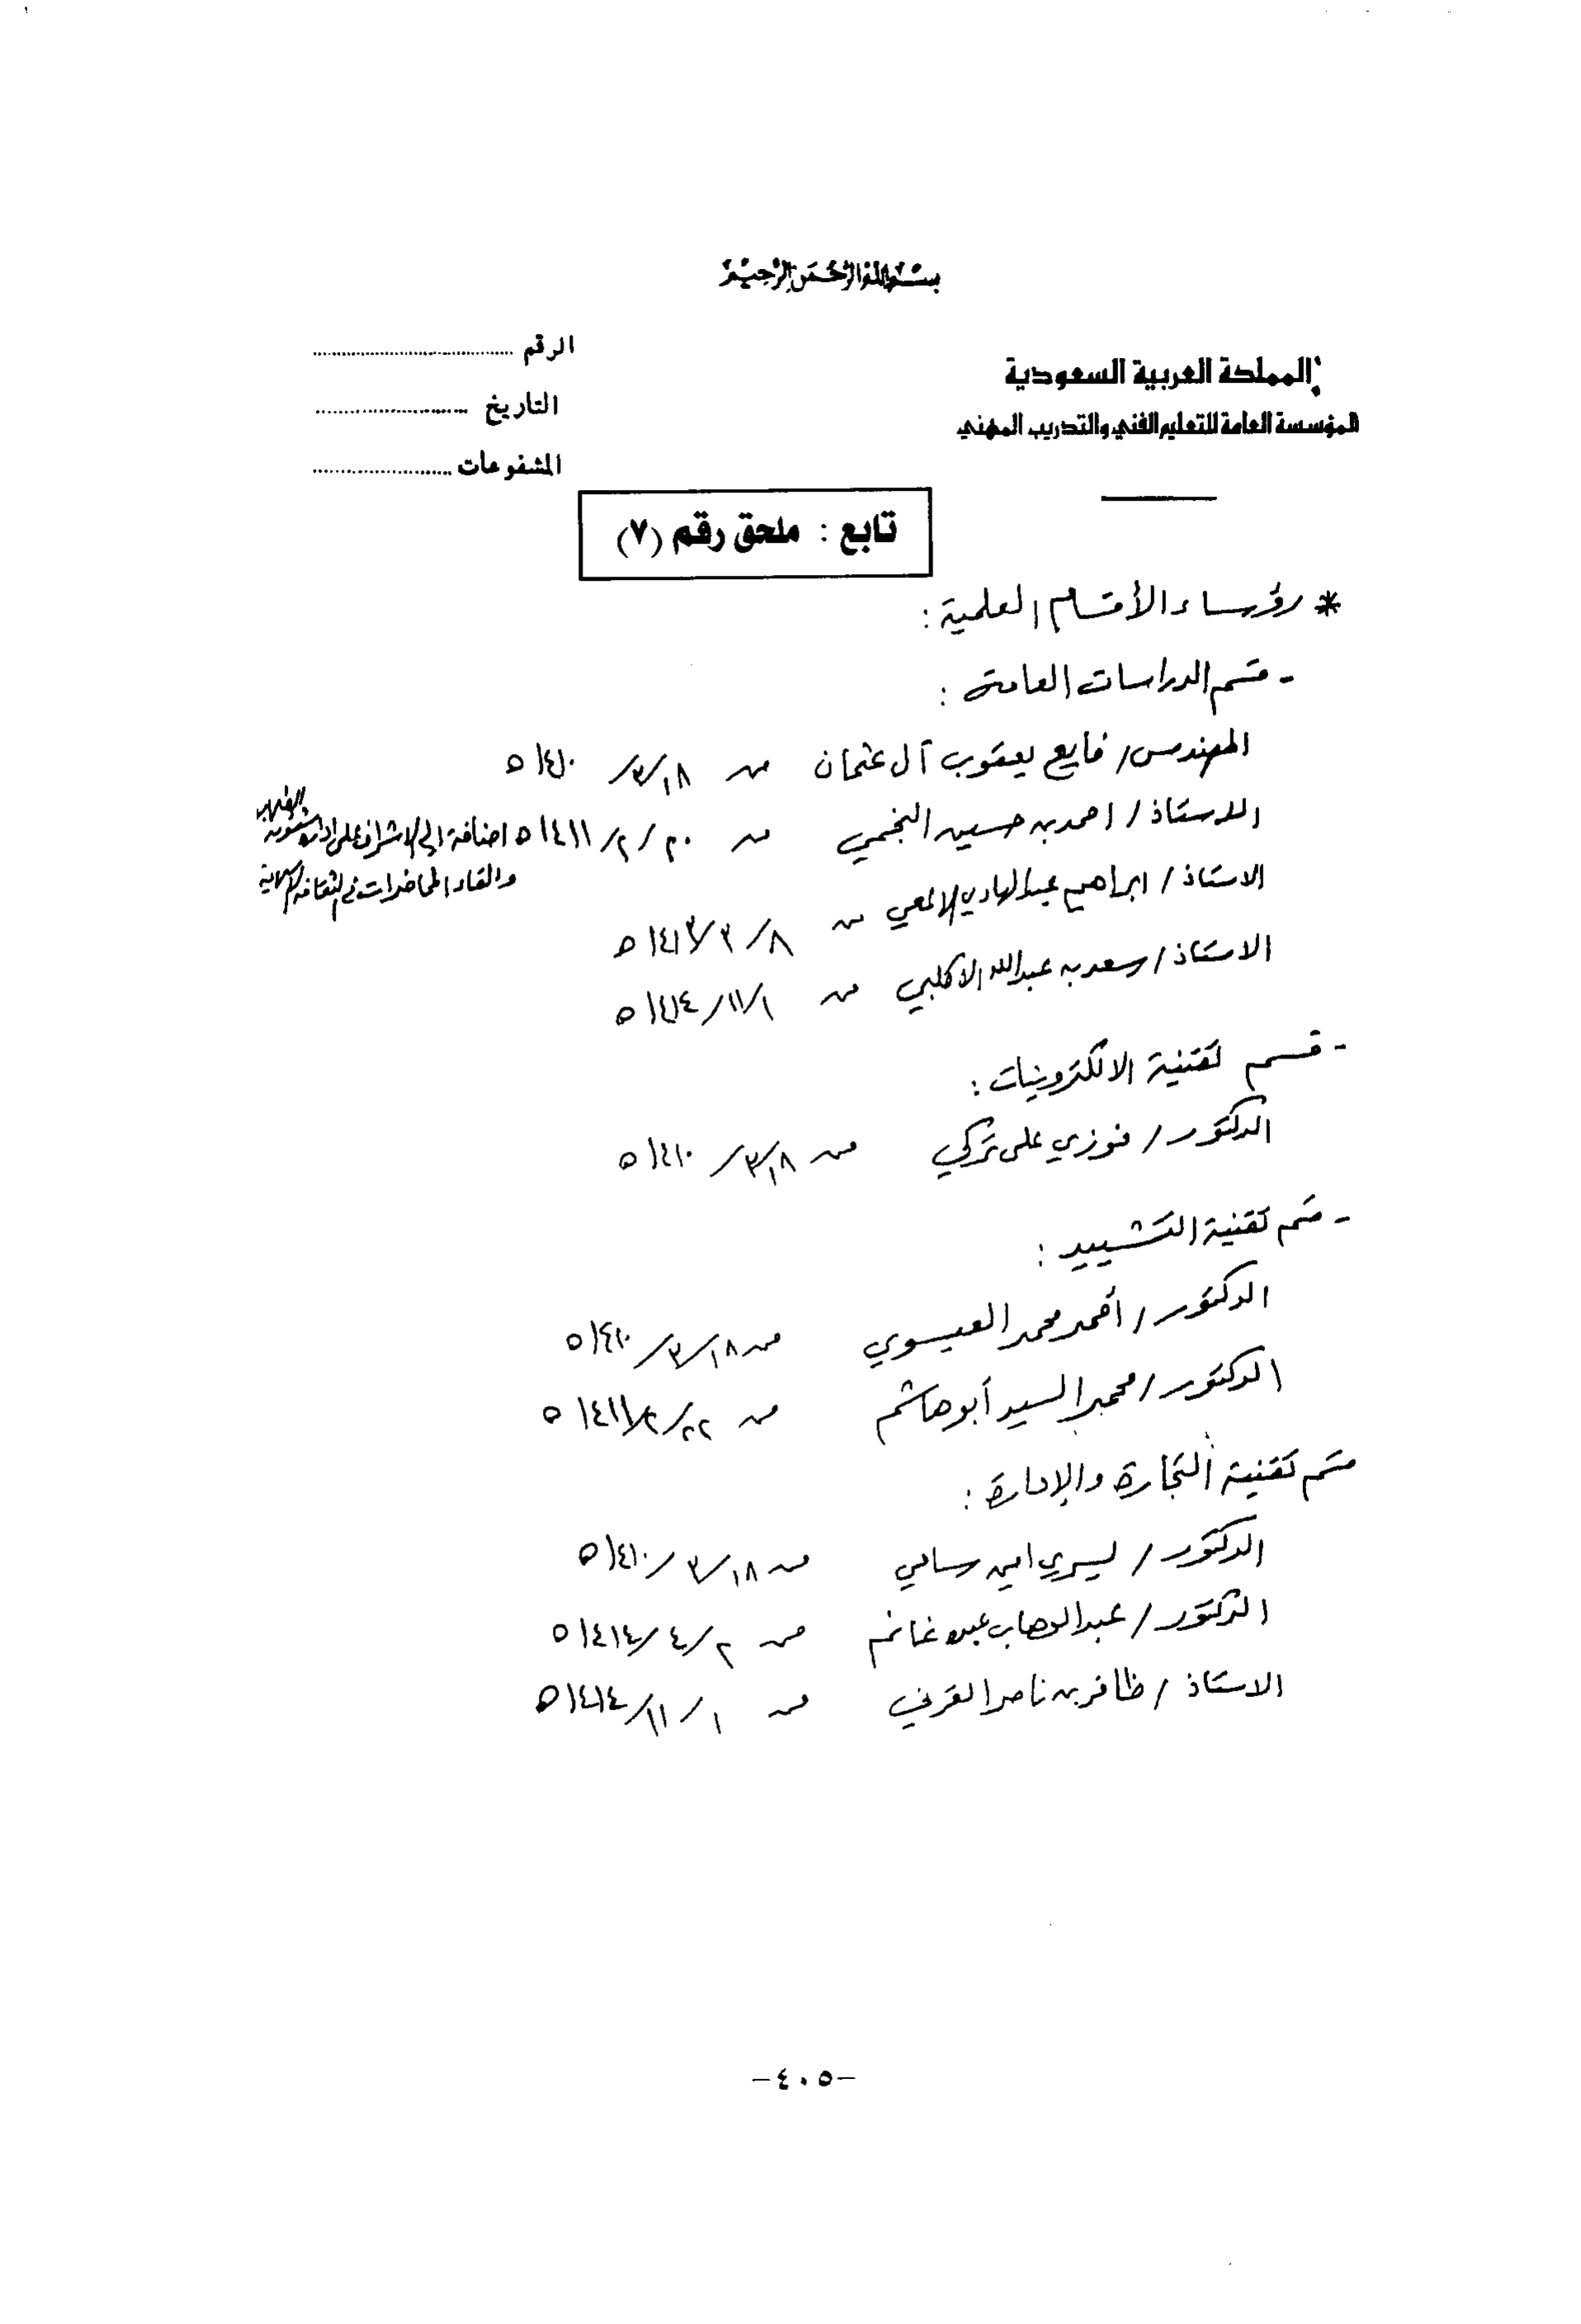 بسم الله الرحمن الرحيم
المملكة العربية السعودية
المؤسسة العامة للتعليم الفني والتدريب المهني
الرقم ........................
التاريخ ........................
المشفوعات ........................
تابع : ملحق رقم (٧)
* رؤساء الأقسام العلمية :
- قسم الدراسات العامة :
المهندس / فايع يعقوب آل عثمان من ١٨/٣/١٤١٠ هـ
الاستاذ / احمد بن حسين النجمي من ٢٠/٢/١٤١١ هـ اضافة إلى الاشراف على ادارة شئون
والقاء المحاضرات في الثقافة الاسلامية
الاستاذ / ابراهيم عبدالهادي الالمعي من ٨/٣/١٤١٣ هـ
الاستاذ / سعد بن عبدالله الاكلبي من ١/١١/١٤١٤ هـ
- قسم تقنية الالكترونيات :
الدكتور / فوزي على تركي من ١٨/٣/١٤١٠ هـ
- قسم تقنية التشييد :
الدكتور / أحمد محمد العيسوي من ١٨/٣/١٤١٠ هـ
الدكتور / محمد السيد أبو هاشم من ٢٢/٢/١٤١١ هـ
قسم تقنية التجارة والإدارة :
الدكتور / يسري امين سامي من ١٨/٣/١٤١٠ هـ
الدكتور / عبدالوهاب عبده غانم من ٢/٤/١٤١٤ هـ
الاستاذ / ظافر بن ناصر القرني من ١/١١/١٤١٤ هـ
-٤٠٥-